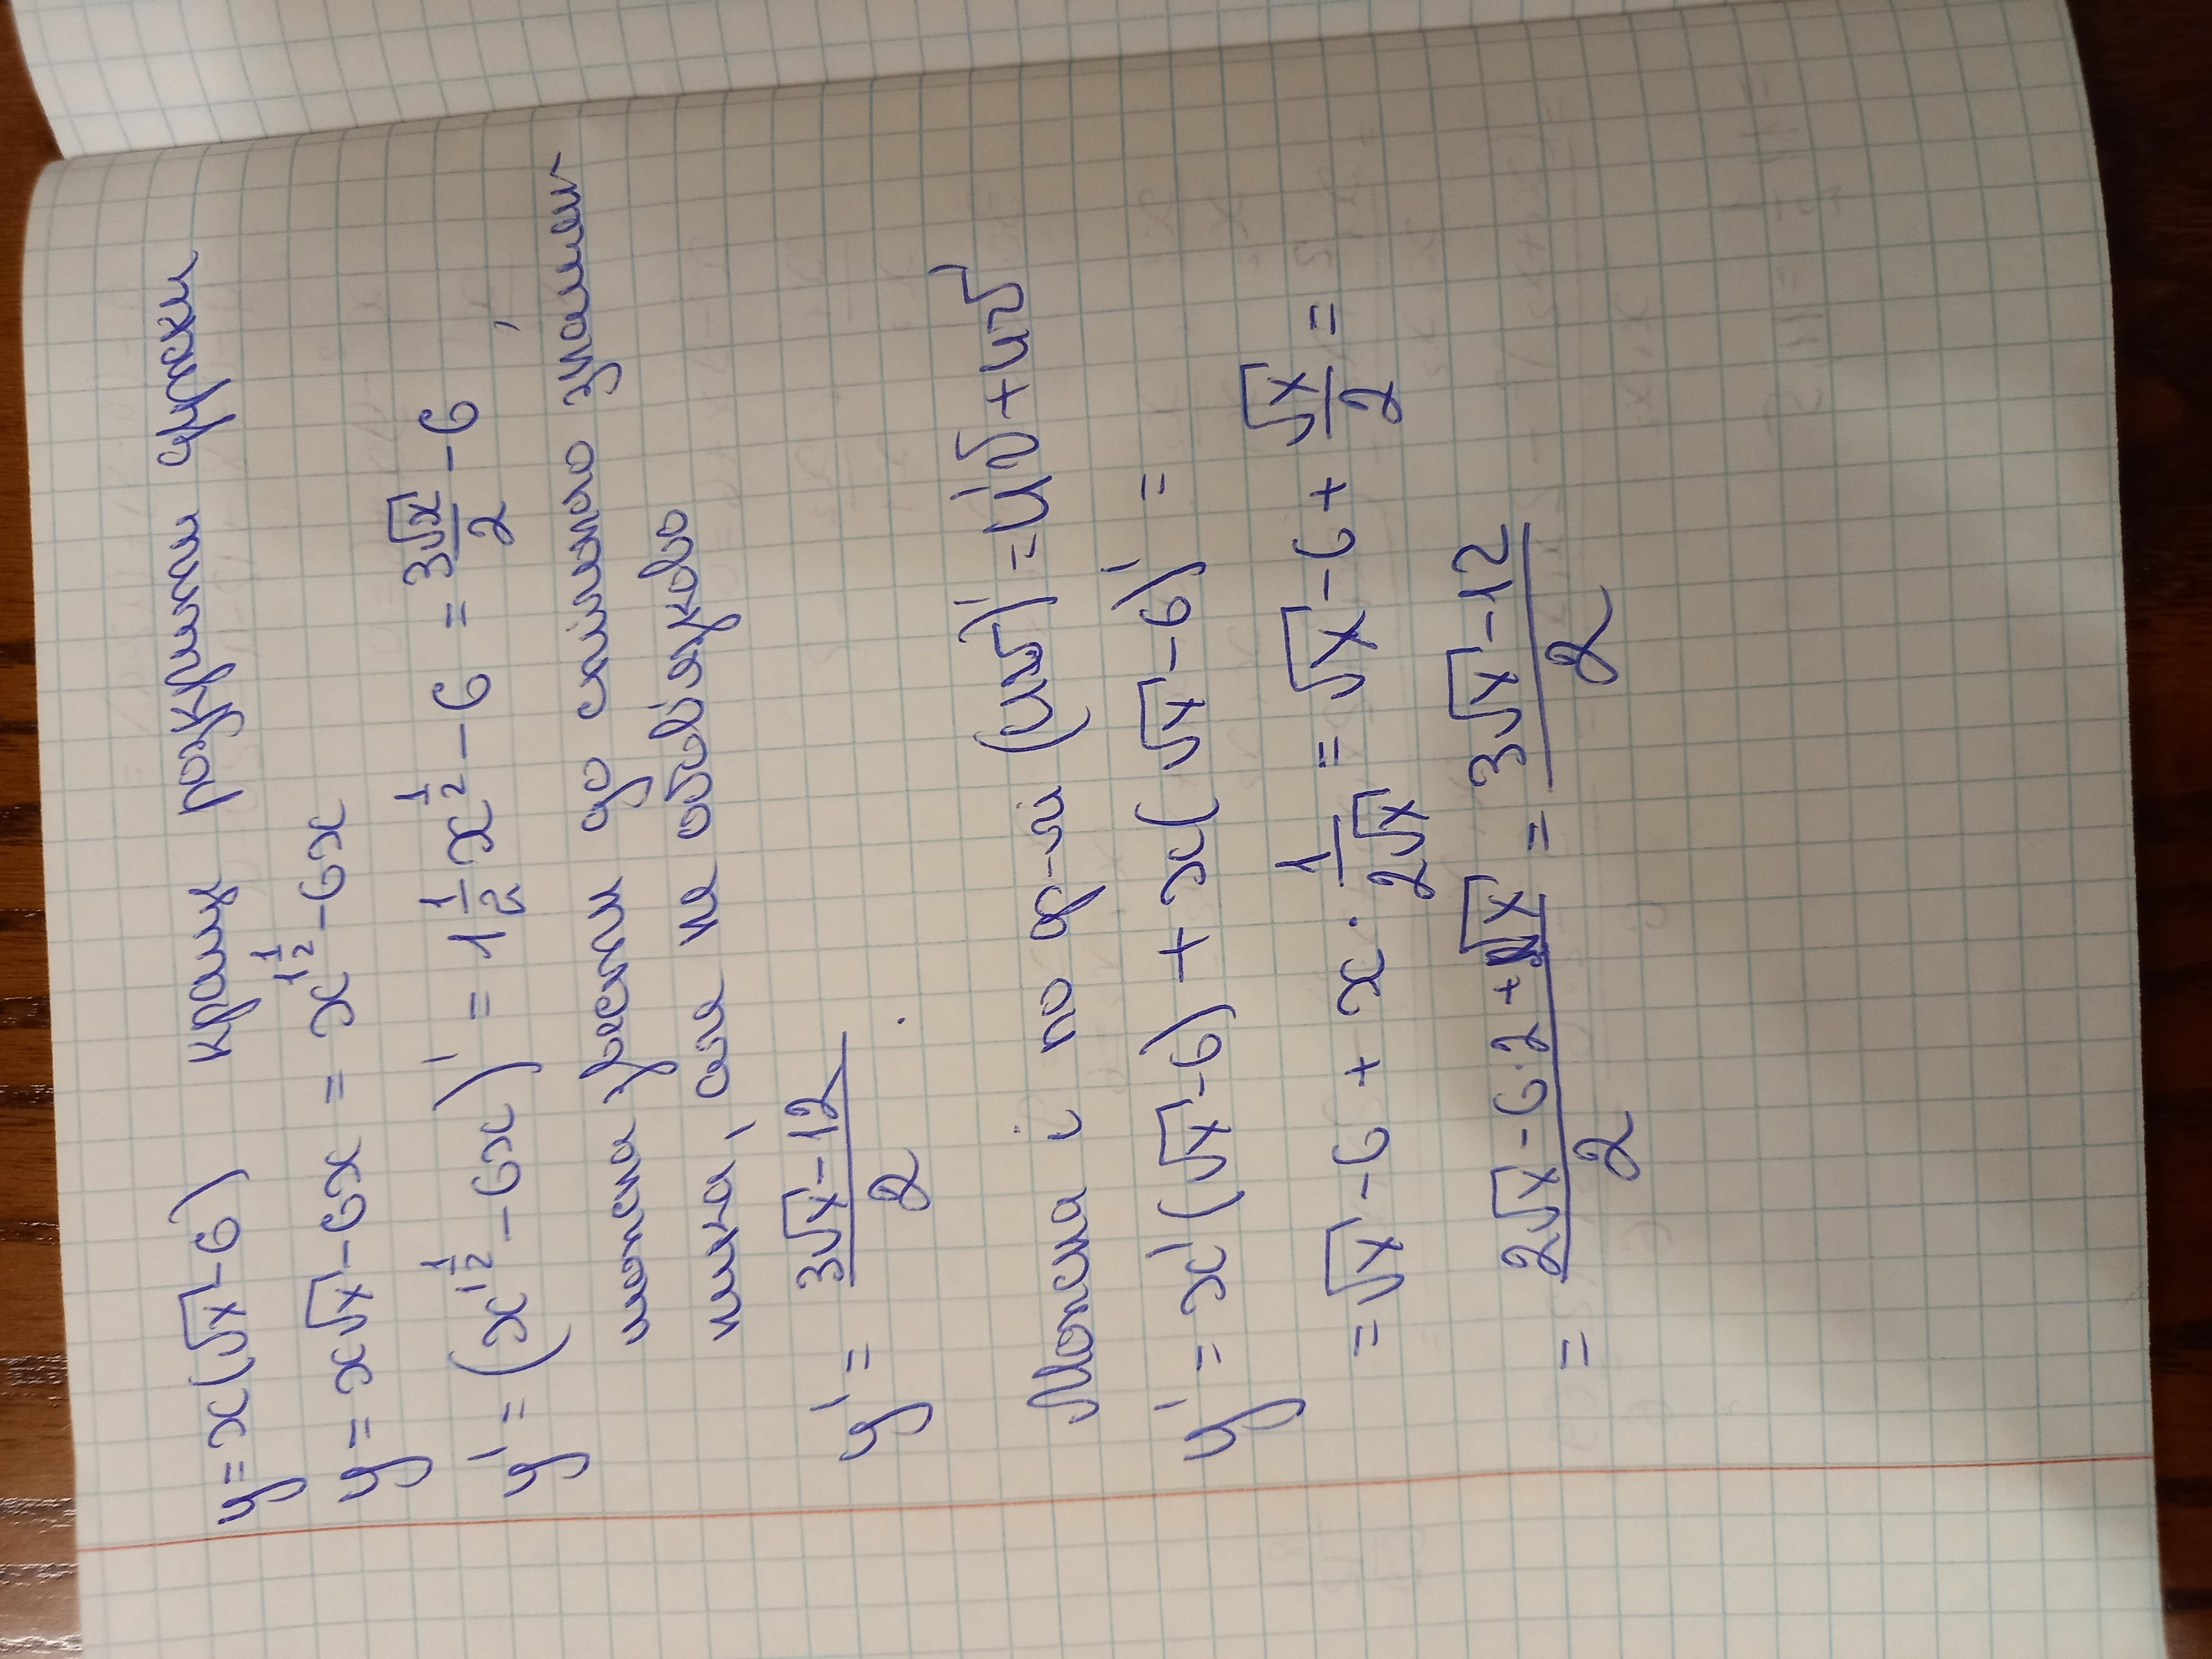 y = x(√x - 6) краще розкрити дужки
y = x√x - 6x = x^{1\frac{1}{2}} - 6x
y' = (x^{1\frac{1}{2}} - 6x)' = 1\frac{1}{2}x^{\frac{1}{2}} - 6 = \frac{3√x}{2} - 6,
можна звести до спільного знамен
ника, але не обов'язково
y' = \frac{3√x - 12}{2}.
Можна і по ф-лі (uv)' = u'v + uv'
y' = x'(√x - 6) + x(√x - 6)' =
= √x - 6 + x · \frac{1}{2√x} = √x - 6 + \frac{√x}{2} =
= \frac{2√x - 6·2 + √x}{2} = \frac{3√x - 12}{2}